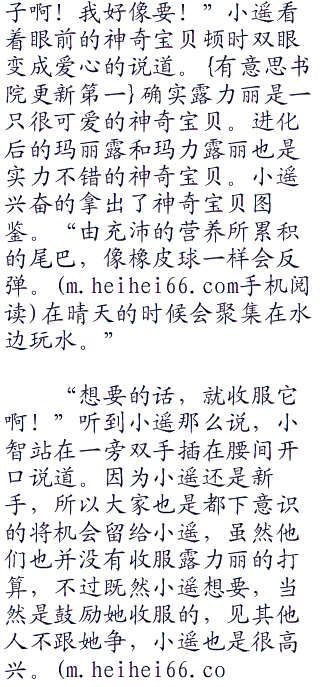 子啊！我好像要！”小遥看
着眼前的神奇宝贝顿时双眼
变成爱心的说道。{有意思书
院更新第一}确实露力丽是一
只很可爱的神奇宝贝。进化
后的玛丽露和玛力露丽也是
实力不错的神奇宝贝。小遥
兴奋的拿出了神奇宝贝图
鉴。“由充沛的营养所累积
的尾巴，像橡皮球一样会反
弹。(m.heihei66.com手机阅
读)在晴天的时候会聚集在水
边玩水。”
“想要的话，就收服它
啊！”听到小遥那么说，小
智站在一旁双手插在腰间开
口说道。因为小遥还是新
手，所以大家也是都下意识
的将机会留给小遥，虽然他
们也并没有收服露力丽的打
算，不过既然小遥想要，当
然是鼓励她收服的，见其他
人不跟她争，小遥也是很高
兴。(m.heihei66.co